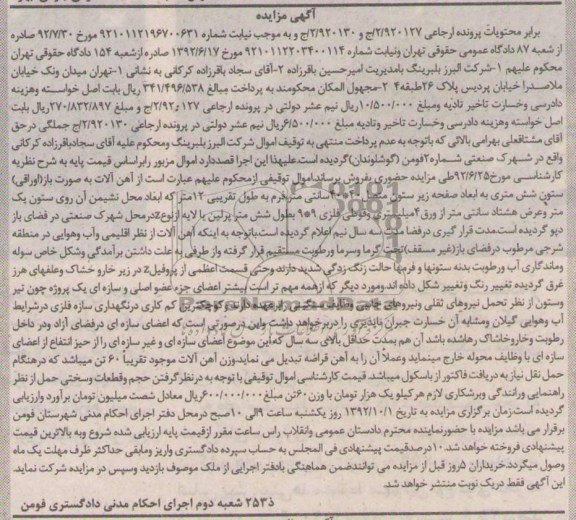 آگهی مزایده
برابر محتویات پرونده ارجاعی ۲/۹۲۰۱۲۷ج و ۲/۹۲۰۱۳۰ج و به موجب نیابت شماره ۹۲۱۰۱۱۲۱۹۶۷۰۰۶۳۱ مورخ ۹۲/۷/۳۰ صادره
از شعبه ۸۷ دادگاه عمومی حقوقی تهران ونیابت شماره ۹۲۱۰۱۱۲۲۰۳۴۰۰۱۱۴ مورخ ۱۳۹۲/۶/۱۷ صادره ازشعبه ۱۵۴ دادگاه حقوقی تهران
محکوم علیهم ۱-شرکت البرز بلبرینگ بامدیریت امیرحسین باقرزاده ۲-آقای سجاد باقرزاده کرکانی به نشانی ۱-تهران میدان ونک خیابان
ملاصدرا خیابان پردیس پلاک ۲۶طبقه۴ ۲-مجهول المکان محکومند به پرداخت مبالغ ۳۴۱/۴۹۶/۵۳۸ ریال بابت اصل خواسته وهزینه
دادرسی وخسارت تاخیر تادیه ومبلغ ۱۰/۵۰۰/۰۰۰ریال نیم عشر دولتی در پرونده ارجاعی ۲/۹۲۰۱۲۷ج و مبلغ ۲۷۰/۸۳۲/۸۹۷ریال بابت
اصل خواسته وهزینه دادرسی وخسارت تاخیر وتادیه مبلغ ۶/۵۰۰/۰۰۰ریال نیم عشر دولتی در پرونده ارجاعی ۲/۹۲۰۱۳۰ج جملگی درحق
آقای مشتاقعلی بهرامی بالائی که باتوجه به عدم پرداخت منتهی به توقیف اموال شرکت البرز بلبرینگ ومحکوم علیه آقای سجادباقرزاده کرکانی
واقع در شهرک صنعتی شماره۲فومن (گوشلوندان)گردیده است.علیهذا این اجرا قصددارد اموال مزبور رابراساس قیمت پایه به شرح نظریه
کارشناسی مورخ۹۲/۶/۲۵طی مزایده حضوری بفروش برساند.اموال توقیفی ازمحکوم علیهم عبارت است از آهن آلات به صورت باز(اوراقی)
ستون شش متری به ابعاد صفحه زیر ستون متعلقات ۴۰سانتی متر خرم به طول تقریبی ۱۲متر که ابعاد محل نشیمن آن روی ستون یک
متر وعرض هشتاد سانتی متر از ورق۴میلیمتری وقوطی فلزی ۹*۹ بطول شش متر پرلین یا لایه ازنوعzدرمحل شهرک صنعتی در فضای باز
دپو گردیده است.مدت قرار گیری درفضا باز سه سال نیم اعلام گردیده است.باتوجه به اینکه آهن آلات از نظر اقلیمی وآب وهوایی در منطقه
شرجی مرطوب درفضای باز(غیر مسقف)تحت گرما وسرما ورطوبت مستقیم قرار گرفته واز طرفی به علت داشتن برآمدگی وشکل خاص سوله
وماندگاری آب ورطوبت بدنه ستونها و فرمها حالت زنگ زدگی شدید دارند وحتی قسمت اعظمی از پروفیلz در زیر خارو خشاک وعلفهای هرز
غرق گردیده تغییر رنگ وتغییر شکل داده اند.ومورد دیگر که ازهمه مهم تر است بیشتر اعضای جزء عضو اصلی و سازه ای یک پروژه چون تیر
وستون از نظر تحمل نیروهای ثقلی ونیروهای جانبی وظایف سنگین را برعهده دارند وکوچکترین کم کاری درنگهداری سازه فلزی درشرایط
آب وهوایی گیلان ومشابه آن خسارت جبران ناپذیری را دربرخواهد داشت واین درصورتی است که اعضای سازه ای درفضای آزاد ودر داخل
رطوبت وخاروخاشاک رهاشده باشد آن هم بمدت حداقل بالای سه سال که این موضوع اعضای سازه ای و غیر سازه ای را از حیز انتفاع از اعضای
سازه ای با وظایف محوله خارج مینماید وعملاً آن را به آهن قراضه تبدیل می نماید.وزن آهن آلات موجود تقریباً ۶۰ تن میباشد که درهنگام
حمل نقل نیاز به دریافت فاکتور از باسکول میباشد.قیمت کارشناسی اموال توقیفی با توجه به درنظرگرفتن حجم وقطعات وسختی حمل از نظر
راهنمایی ورانندگی وبرشکاری لازم هرکیلو یک هزار تومان با وزن ۶۰تن مبلغ ۶۰۰/۰۰۰/۰۰۰ریال معادل شصت میلیون تومان برآورد وارزیابی
گردیده است.زمان برگزاری مزایده به تاریخ ۱۳۹۲/۱۰/۱ روز یکشنبه ساعت ۹الی ۱۰صبح درمحل دفتر اجرای احکام مدنی شهرستان فومن
برقرار می باشد مزایده با حضورنماینده محترم دادستان عمومی وانقلاب راس ساعت مقرر ازقیمت پایه ارزیابی شده شروع وبه بالاترین قیمت
پیشنهادی فروخته خواهد شد.۱۰درصدقیمت پیشنهادی فی المجلس به حساب سپرده دادگستری واریز ومابقی حداکثر ظرف مهلت یک ماه
وصول میگردد.خریداران ۵روز قبل از مزایده می توانندضمن هماهنگی بادفتر اجرایی از ملک موصوف بازدید وسپس در مزایده شرکت نماید.
این آگهی فقط دریک نوبت منتشر خواهد شد.
ذ۲۵۳ شعبه دوم اجرای احکام مدنی دادگستری فومن